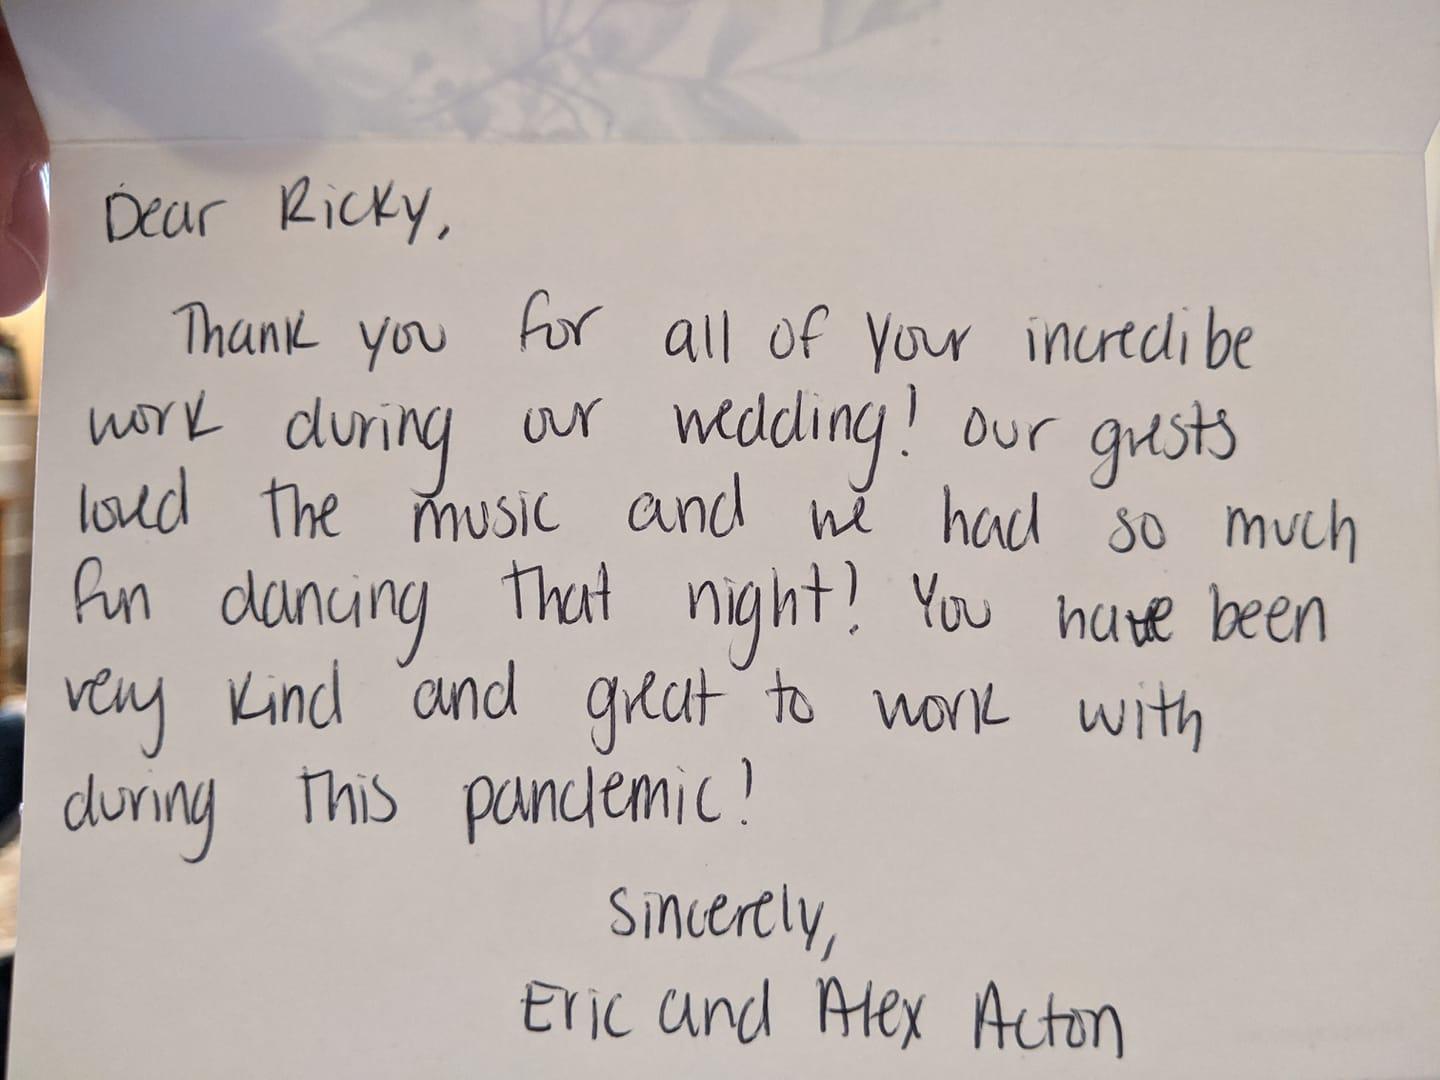 Dear Ricky,
Thank you for all of your incredibe
work during our wedding! Our guests
loved the music and we had so much
fun dancing that night! You have been
very kind and great to work with
during this pandemic!
Sincerely,
Eric and Alex Acton